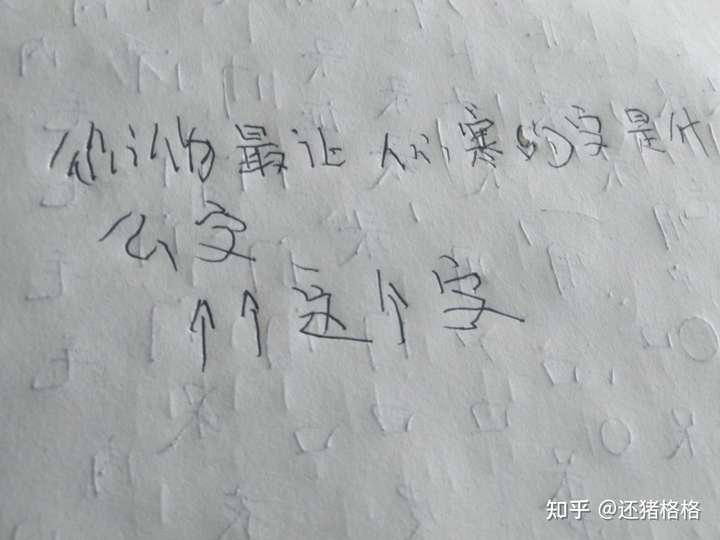 你认为最让人心寒的字是什
么字
↑↑这个字
知乎 @还猪格格